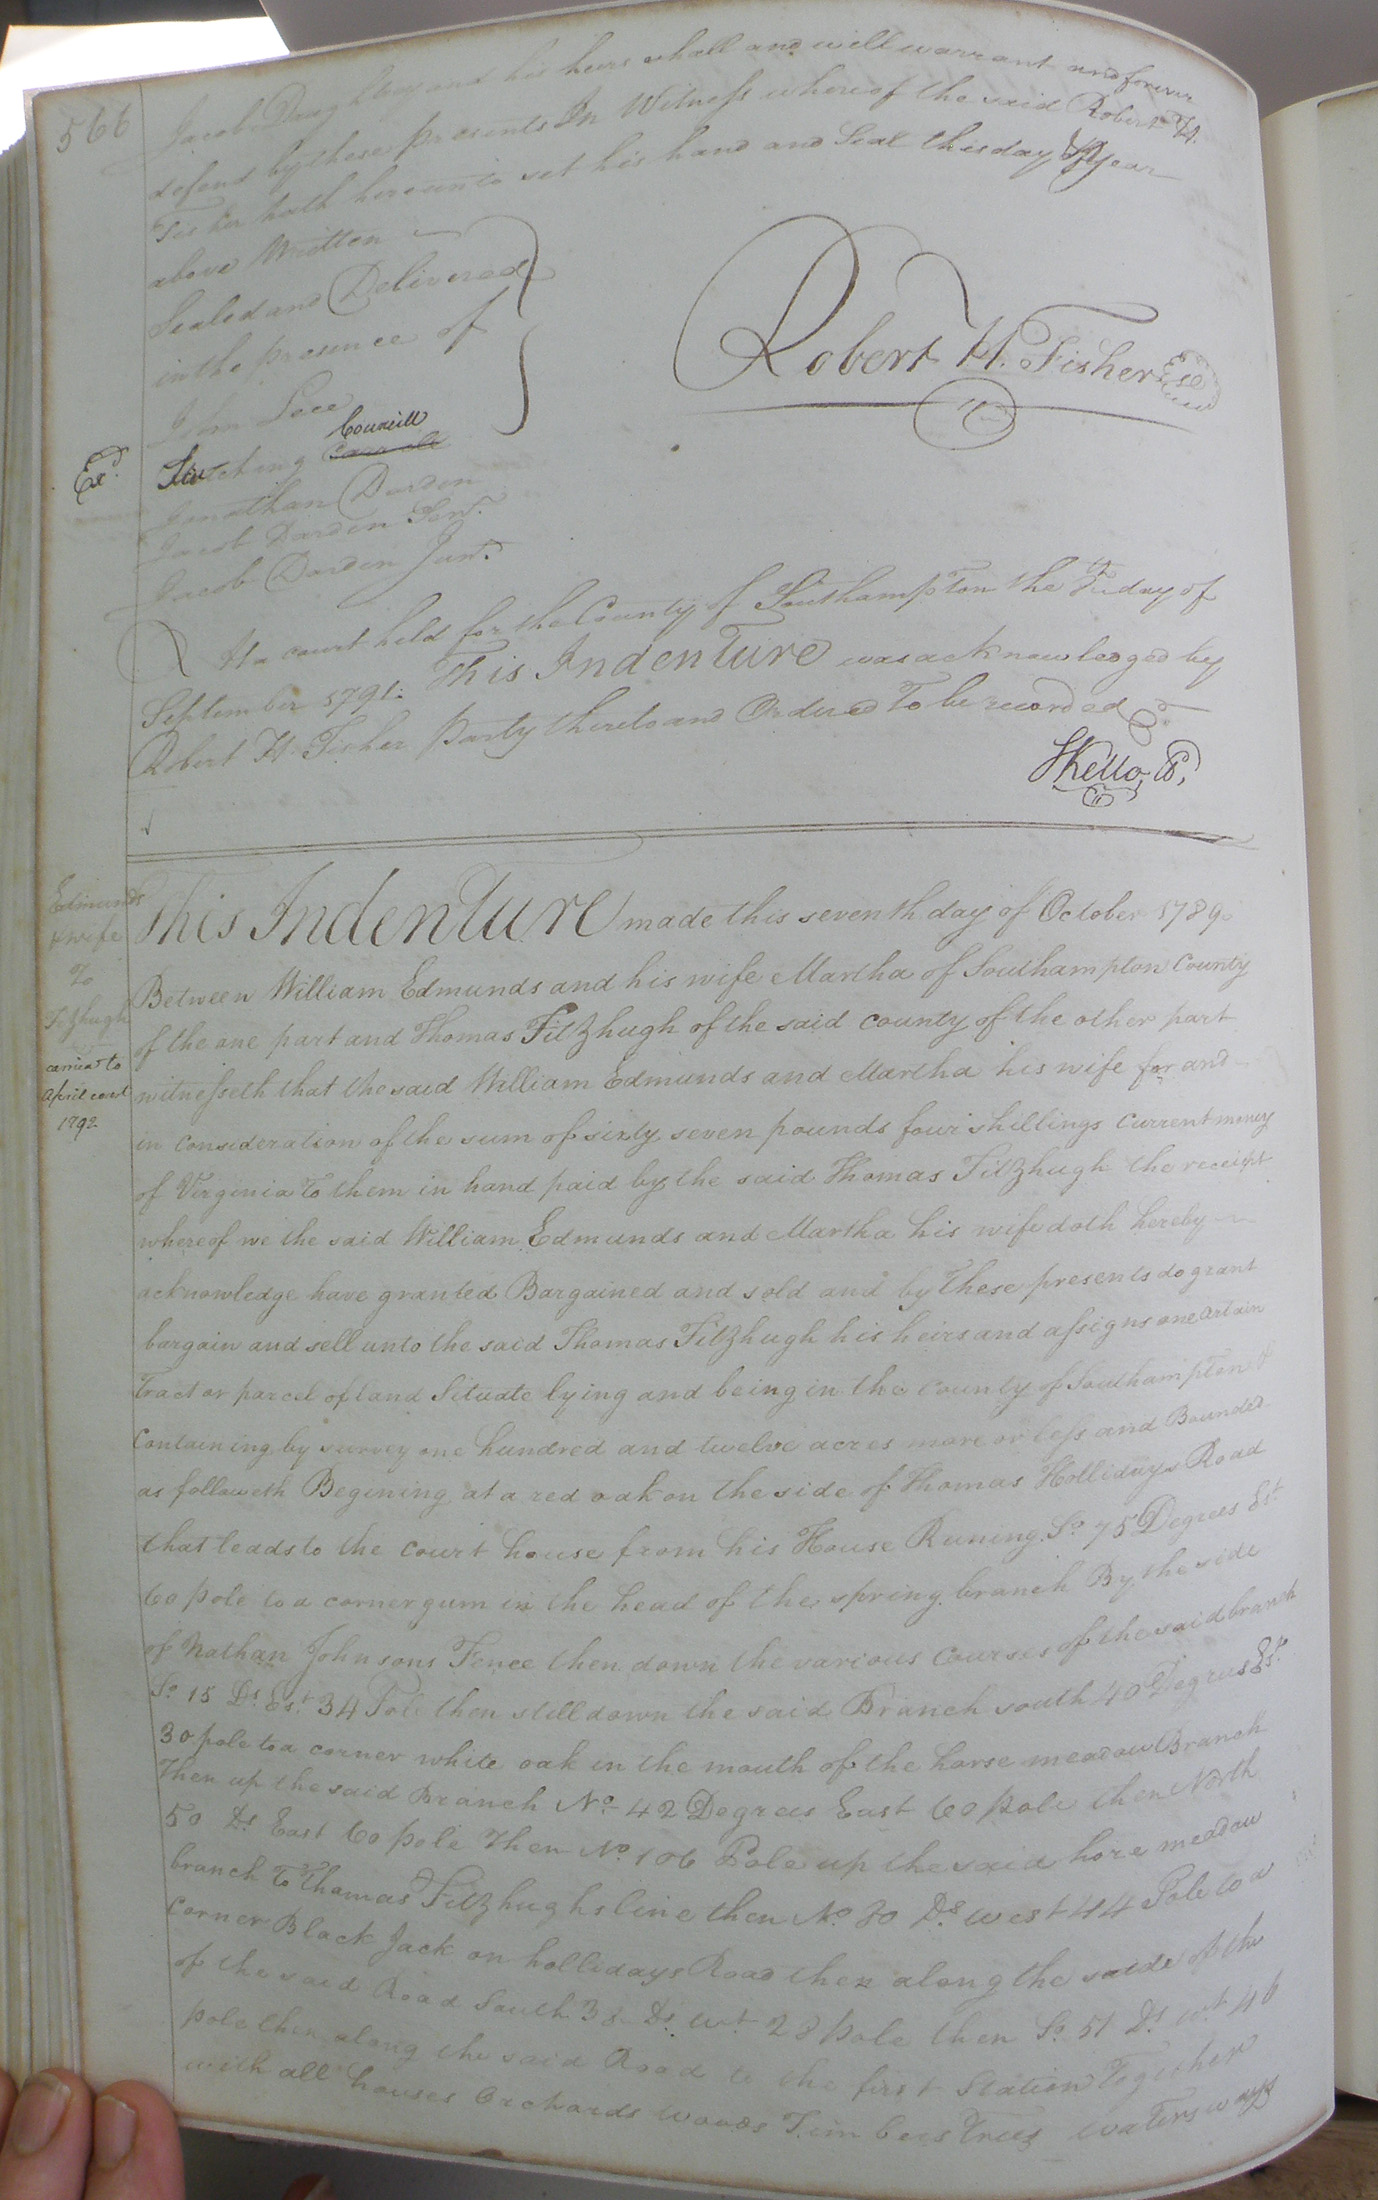 566
Jacob Daughtry and his heirs shall and will warrant and forever
defend by these presents In Witness whereof the said Robert H.
Fisher hath hereunto set his hand and Seal this day & year
above Written
Sealed and Delivered
in the presence of
Robert H. Fisher
John
Councill
Exd.
Jonathan Darden
Jacob Darden Senr.
Jacob Darden Junr.
At a court held for the County of Southampton the day of
September 1791. This Indenture was acknowledged by
Robert H. Fisher party thereto and Ordered To be recorded
Edmunds
& wife
To
Fitzhugh
carried to
April court
1792
This Indenture made this seventh day of October 1789
Between William Edmunds and his wife Martha of Southampton County
of the one part and Thomas Fitzhugh of the said county of the other part
witnesseth that the said William Edmunds and Martha his wife for and
in consideration of the sum of sixty seven pounds four shillings Current money
of Virginia To them in hand paid by the said Thomas Fitzhugh the receipt
whereof we the said William Edmunds and Martha his wife doth hereby
acknowledge have granted Bargained and sold and by these presents do grant
bargain and sell unto the said Thomas Fitzhugh his heirs and assigns one certain
Tract or parcel of land Situate lying and being in the County of Southampton &
Containing by survey one hundred and twelve acres more or less and Bounded
as followeth Begining at a red oak on the side of Thomas Hollidays Road
that leads to the court house from his House Runing So. 75 Degrees Est.
60 pole to a corner gum in the head of the spring branch By the side
of Nathan Johnsons Fence then down the various Courses of the said branch
So. 15 Ds. Est. 34 Pole then still down the said Branch south 40 Degrees Est.
30 pole to a corner white oak in the mouth of the horse meadow Branch
Then up the said Branch No. 42 Degrees East 60 pole then North
50 Ds East 60 pole Then No. 106 Pole up the said hore meadow
branch To Thomas Fitzhughs line then No. 30 Ds. west 44 Pole to a
Corner Black Jack on hollidays Road then along the saide of the
of the said Road South 38 Ds. wt. 28 pole then So. 51 Ds. wt. 46
pole then along the said Road to the first Station Together
with all houses Orchards woods Timbers Trees waters ways